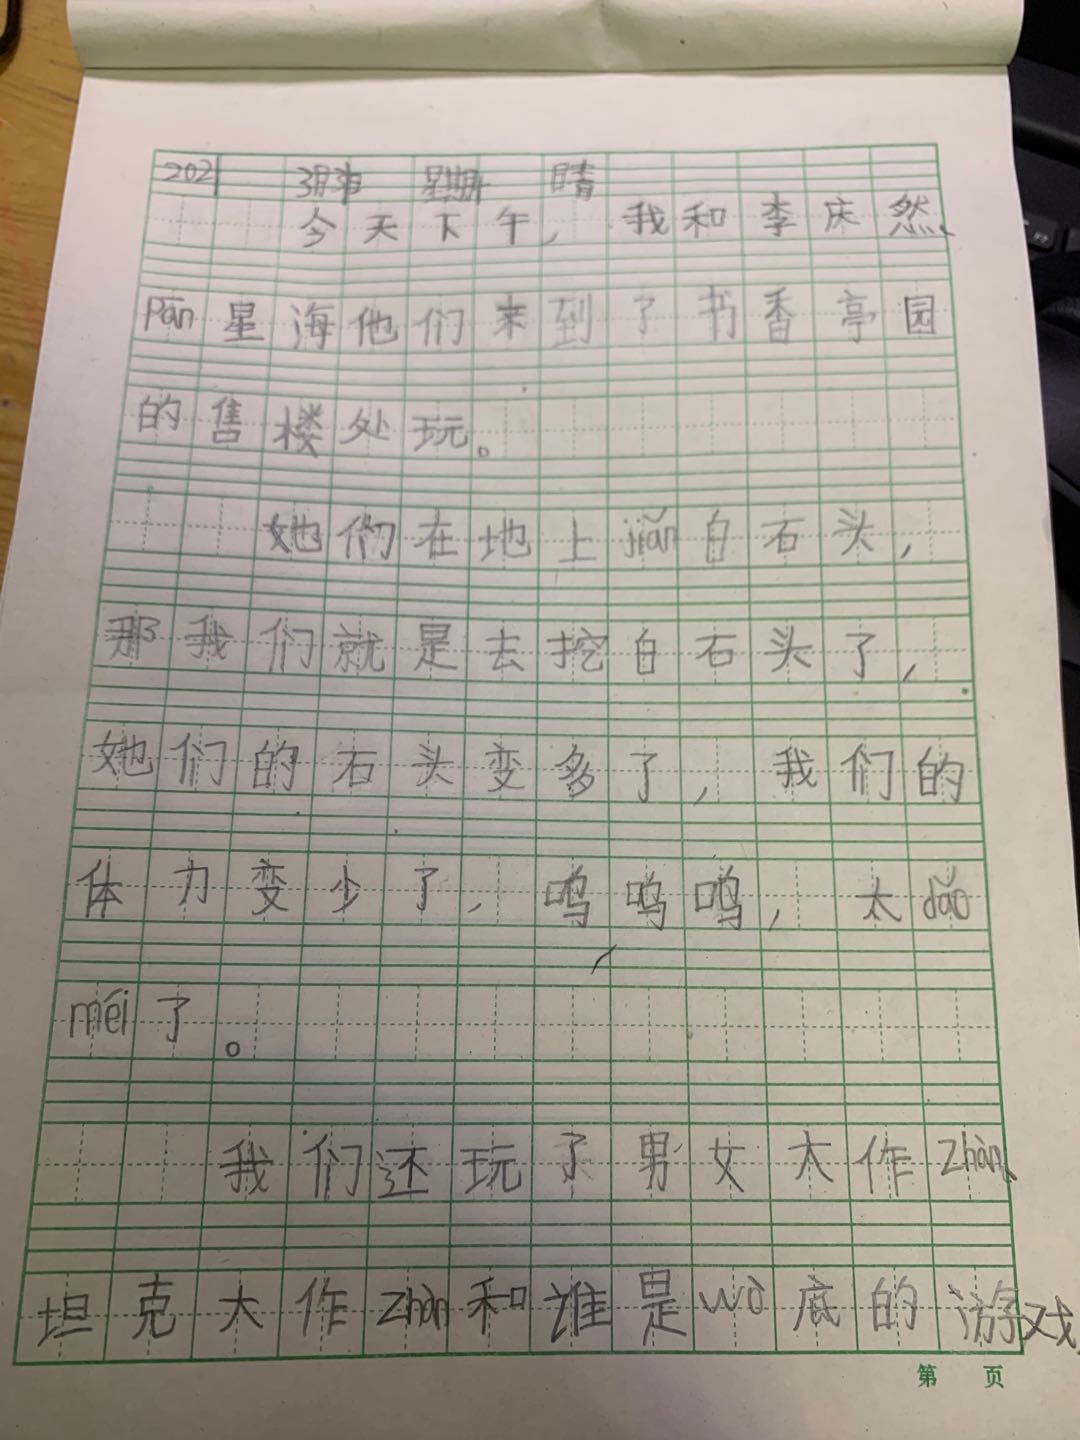 2021 3月3日 星期 晴
今天下午，我和李庆然、
Pān星海他们来到了书香亭园
的售楼处玩。
她们在地上jiǎn白石头，
那我们就是去挖白石头了，
她们的石头变多了，我们的
体力变少了，呜呜呜，太dǎo
méi了。
我们还玩了男女大作zhàn、
坦克大作zhàn和谁是wò底的游戏
第 页